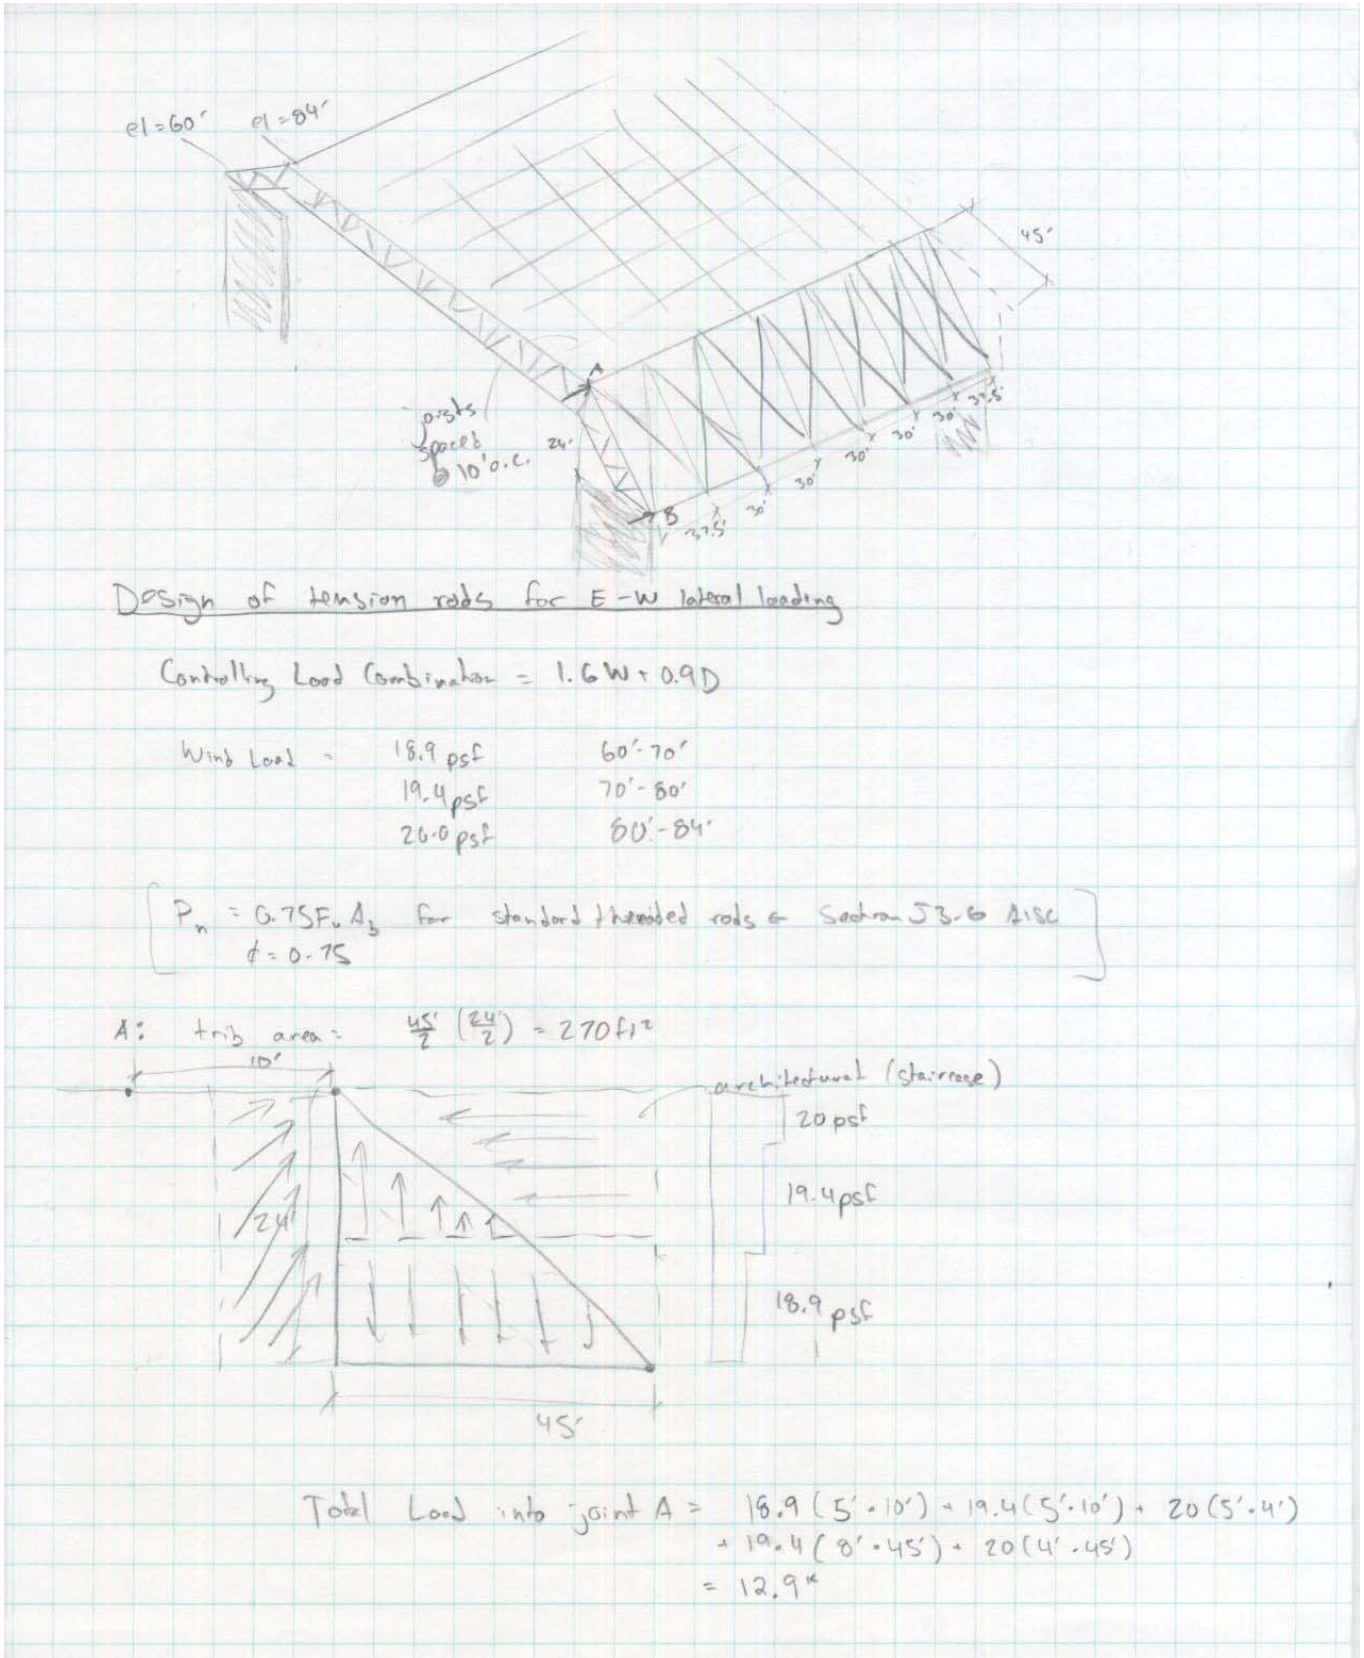 el=60' el=84'
45'
A
joists
spaced
@ 10' o.c.
24'
B
37.5' 30' 30' 30' 30' 30' 37.5'
Design of tension rods for E-W lateral loading
Controlling Load Combination = 1.6W + 0.9D
Wind Load = 18.9 psf 60'-70'
19.4 psf 70'-80'
20.0 psf 80'-84'
Pn = 0.75 Fu Ab for standard threaded rods ← Section J3.6 AISC
ϕ = 0.75
A: trib area = 45'/2 (24'/2) = 270 ft²
10'
architectural (staircase)
20 psf
19.4 psf
24'
18.9 psf
45'
Total Load into joint A = 18.9 (5'·10') + 19.4 (5'·10') + 20 (5'·4')
+ 19.4 (8'·45') + 20 (4'·45')
= 12.9ᵏ